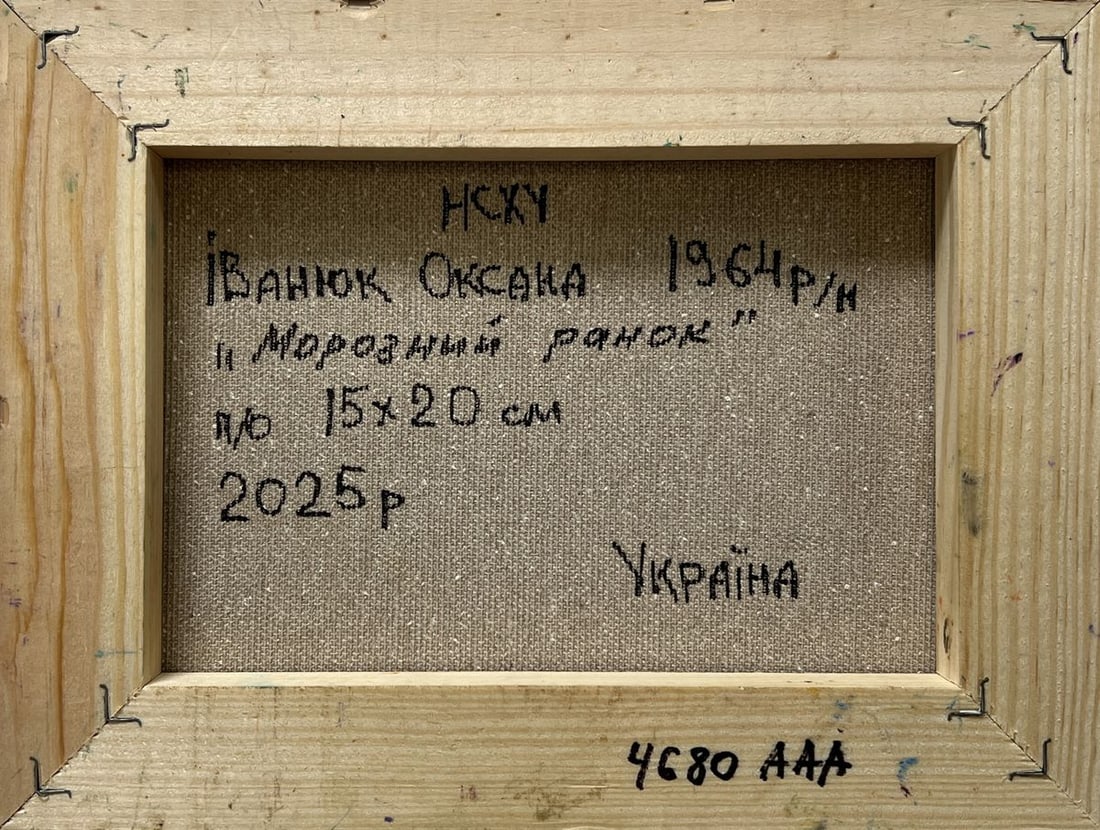 НСХУ
Іванюк Оксана 1964 р/н
„Морозний ранок"
п/о 15х20 см
2025р
Україна
4680 ААА